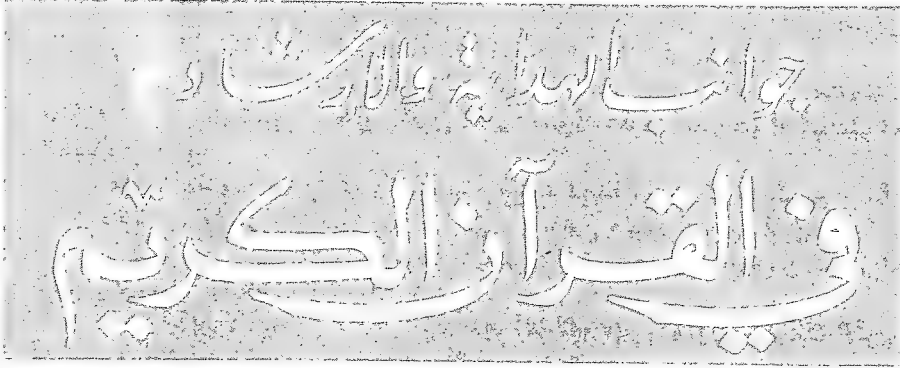 جوانب الهداية والارشاد
في القرآن الكريم